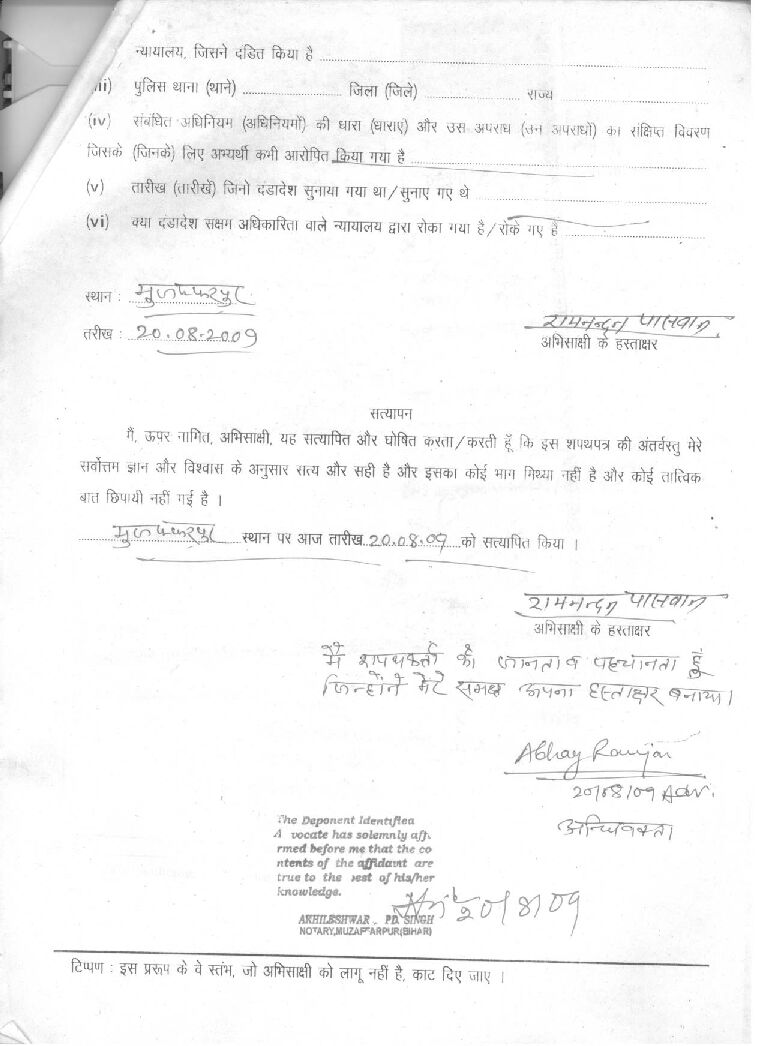 न्यायालय, जिसने दंडित किया है
iii) पुलिस थाना (थाने) जिला (जिले) राज्य
(iv) संबंधित अधिनियम (अधिनियमों) की धारा (धाराएं) और उस अपराध (उन अपराधों) का संक्षिप्त विवरण
जिसके (जिनके) लिए अभ्यर्थी कभी आरोपित किया गया है
(v) तारीख (तारीखें) जिनो दंडादेश सुनाया गया था/सुनाए गए थे
(vi) क्या दंडादेश सक्षम अधिकारिता वाले न्यायालय द्वारा रोका गया है/रोके गए हैं
स्थान : मुजफ्फरपुर
तरीख : 20.08.2009
रामनन्दन पासवान
अभिसाक्षी के हस्ताक्षर
सत्यापन
मैं, ऊपर नामित, अभिसाक्षी, यह सत्यापित और घोषित करता/करती हूँ कि इस शपथपत्र की अंतर्वस्तु मेरे
सर्वोत्तम ज्ञान और विश्वास के अनुसार सत्य और सही है और इसका कोई भाग मिथ्या नहीं है और कोई तात्विक
बात छिपायी नहीं गई है ।
मुजफ्फरपुर स्थान पर आज तारीख 20.08.09 को सत्यापित किया ।
रामनन्दन पासवान
अभिसाक्षी के हस्ताक्षर
मैं शपथकर्ता को जानता व पहचानता हूँ
जिन्होंने मेरे समक्ष अपना हस्ताक्षर बनाया।
Abhay Ranjan
20/08/09 Adv.
अधिवक्ता
The Deponent Identified
A vocate has solemnly aff.
rmed before me that the co
ntents of the affidavit are
true to the best of his/her
knowledge.
20/8/09
AKHILESHWAR . PD. SINGH
NOTARY,MUZAFFARPUR(BIHAR)
टिप्पण : इस प्ररूप के वे स्तंभ, जो अभिसाक्षी को लागू नहीं है, काट दिए जाए ।